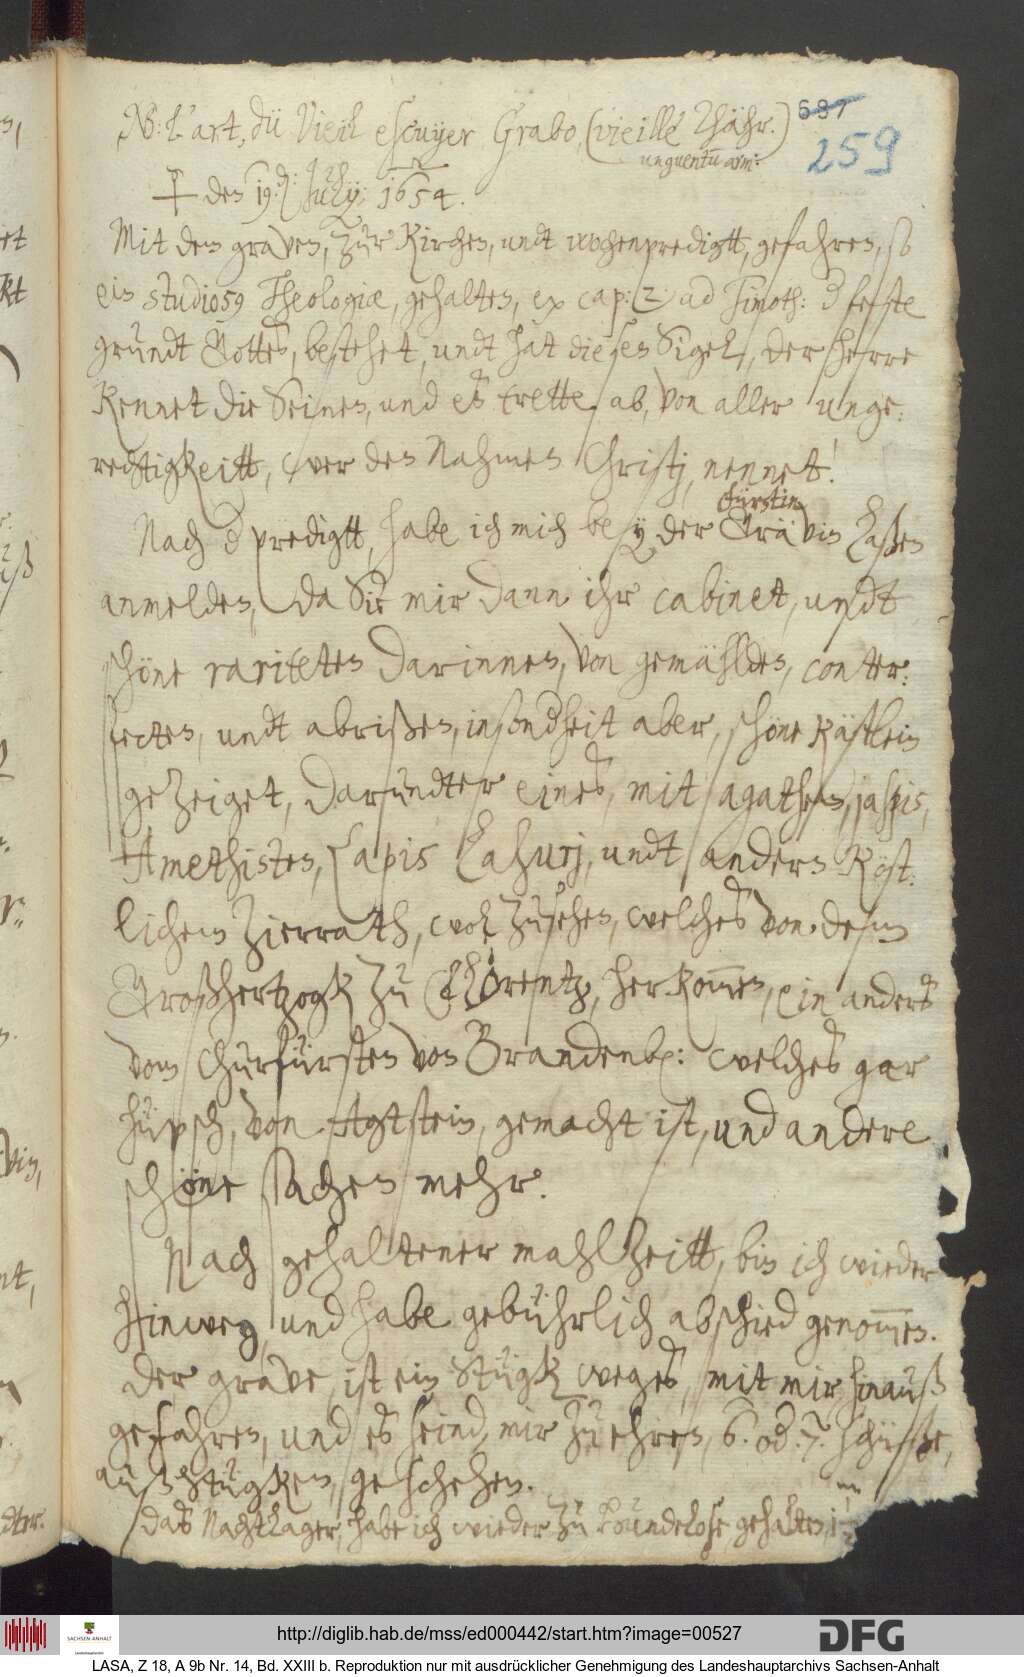 NB: L'art, du Vieil escuyer Grabo, (vieille Thähr.) 687
unguentũ arm: 259
den 19. July: 1654.
Mit dem graven, zur Kirchen, undt wochenpredigtt, gefahren, so
ein studios9 Theologiæ, gehalten, ex cap: 2. ad Timoth: d feste
grundt Gottes, bestehet, undt hat dieses Sigel, der herre
kennet die Seinen, und es trette ab, von aller unge:
rechtigkeitt, wer den Nahmen Christj, nennet!
Nach d predigtt, habe ich mich bey der Grävin laßen
fürstin
anmelden, da Sie mir dann ihr cabinet, undt
schöne rariteten darinnen, von gemählden, conter:
fecten, undt abrißen, insondheit aber, schöne kästlein
gezeiget, darundter eines, mit agathen, jaspis,
Amethisten, Lapis Lasurj, undt andern köst:
lichem Zierrath, wol zusehen, welches von dem
Großhertzogk zu Florentz, herkom̄en, ein anders
vom Churfürsten von Brandenb: welches gar
hüpsch, von Agtstein, gemacht ist, und andere
schöne sachen mehr.
Nach gehaltener mahlzeitt, bin ich wieder
hinweg, und habe gebührlich abschied genom̄en.
der grave, ist ein Stügk weges, mit mir, hinauß
gefahren, und es seind, mir zu ehren, 6. od. 7. schüße,
auß stügken, geschehen.
das Nachtlager, habe ich wieder zu gehalten,
http://diglib.hab.de/mss/ed000442/start.htm?image=00527
SACHSEN-ANHALT
DFG
LASA, Z 18, A 9b Nr. 14, Bd. XXIII b. Reproduktion nur mit ausdrücklicher Genehmigung des Landeshauptarchivs Sachsen-Anhalt